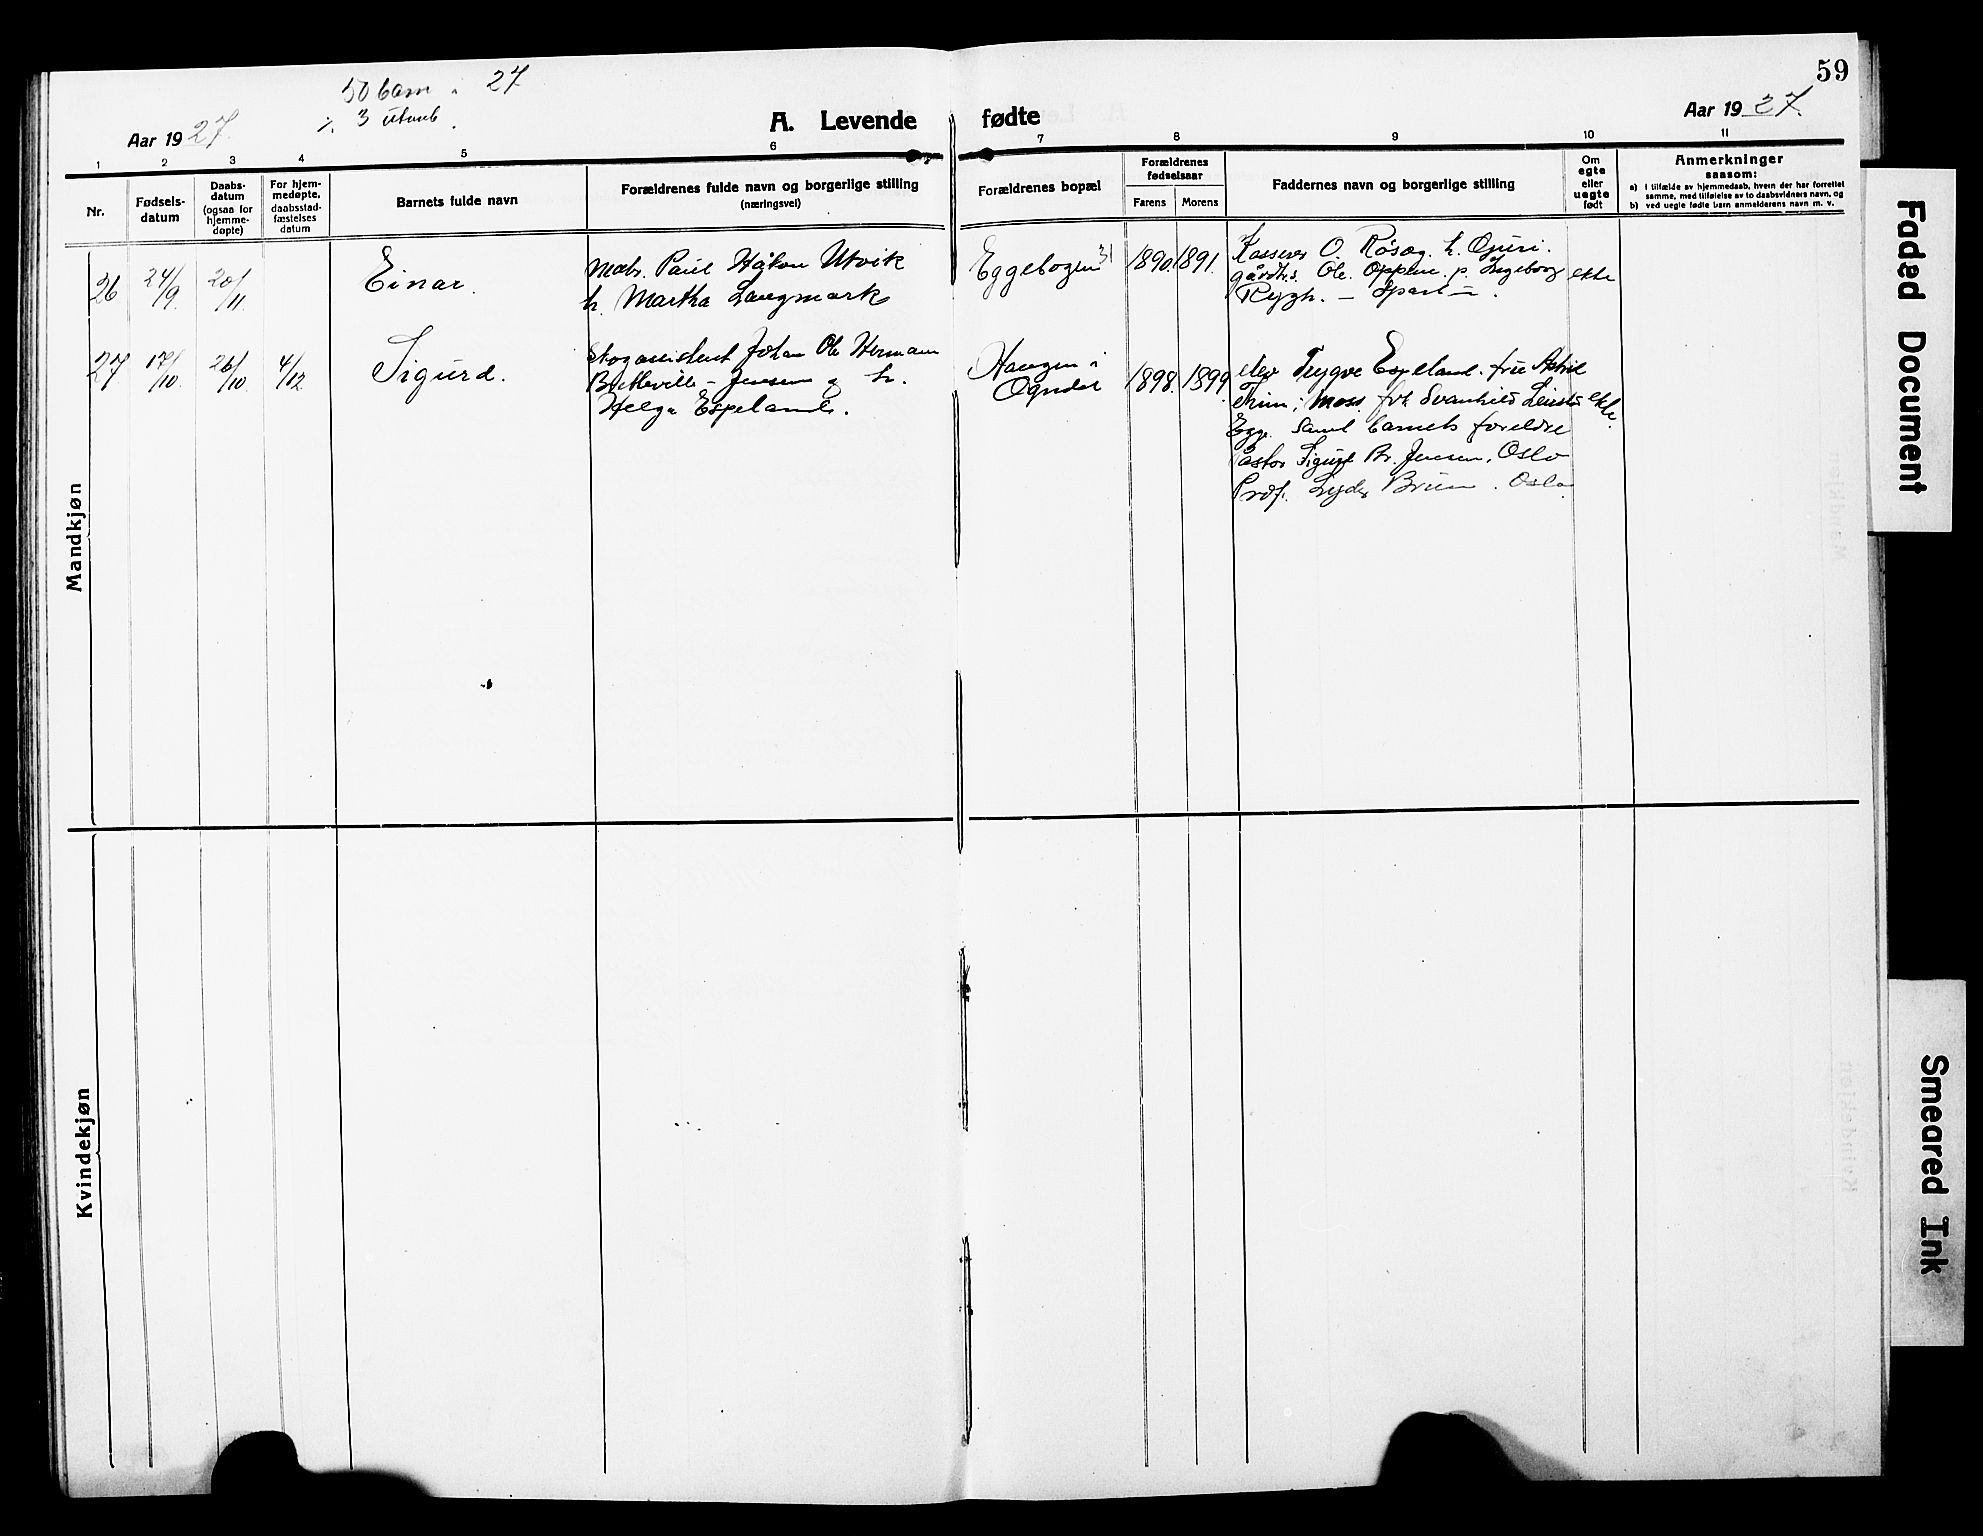 59
50 barn i 27
÷ 3 utenb.
Aar 1927.
A. Levende fødte
Aar 1927.
1 2 3 4 5 6 7 8 9 10 11
Nr.
Fødsels-
datum
Daabs-
datum
(ogsaa for
hjemme-
døpte)
For hjem-
medøpte,
daabsstad-
fæstelses
datum
Barnets fulde navn
Forældrenes fulde navn og borgerlige stilling
(næringsvei)
Forældrenes bopæl
Forældrenes
fødselsaar
Farens Morens
Faddernes navn og borgerlige stilling
Om
egte
eller
uegte
født
Anmerkninger
saasom:
a) i tilfælde av hjemmedaab, hvem der har forrettet
samme, med tilføielse av to daabsvidners navn, og
b) ved uegte fødte barn anmelderens navn m. v.
Mandkjøn
26 24/9 20/11 Einar.
Paul Håkon Utvik
h. Martha Langmark
Eggebogen 31
1890 1891.
Kasserer O. Røsæg. h. Guri.
gårdbr. Ole Oppem. p. Ingeborg
Rygh.
ekte
27 17/10. 26/10. 4/12 Sigurd.
Skogassistent Johan Ole Hermann
Bretteville-Jensen og h.
Helga Espeland.
Haugen i
Ogndal
1898. 1899.
elev Trygve Espeland. fru Astrid
Moss. frk Svanhild
Egge. samt barnets foreldre
Pastor Sigurd Br. Jensen, Oslo
Prof. Lyder Brun. Oslo
ekte.
Kvindekjøn
Faded Document
Smeared Ink